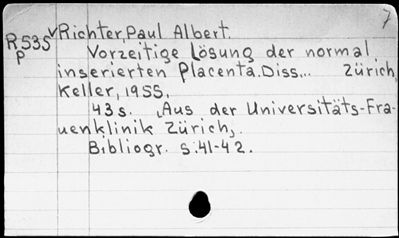 7
R535 vRichter,Paul Albert.
p Vorzeitige Lösung der normal
inserierten Placenta.Diss... Zürich,
Keller, 1955.
43s. „Aus der Universitäts-Fra-
uenklinik Zürich„.
Bibliogr. s.41-42.